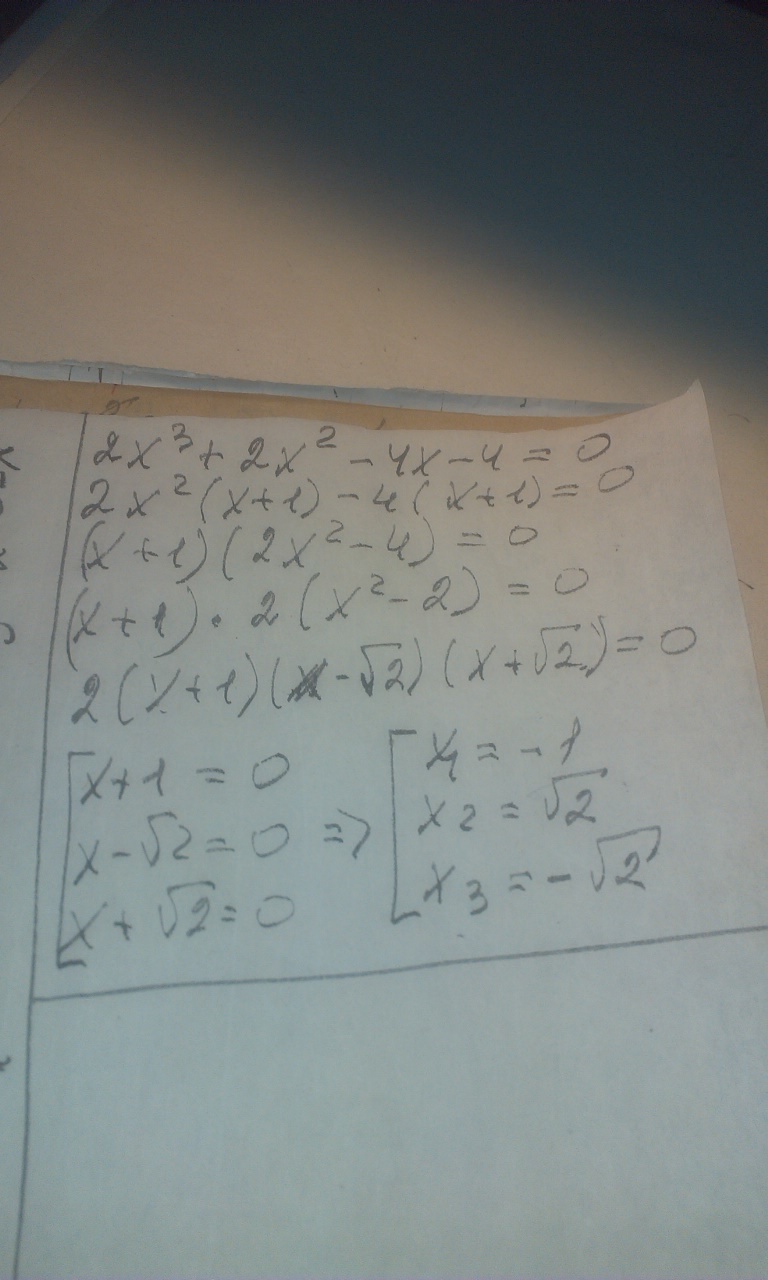 2x³ + 2x² - 4x - 4 = 0
2x²(x+1) - 4(x+1) = 0
(x+1)(2x² - 4) = 0
(x+1) · 2(x² - 2) = 0
2(x+1)(x - √2)(x + √2) = 0
[x+1 = 0
x - √2 = 0 =>
x + √2 = 0
[x₁ = -1
x₂ = √2
x₃ = -√2